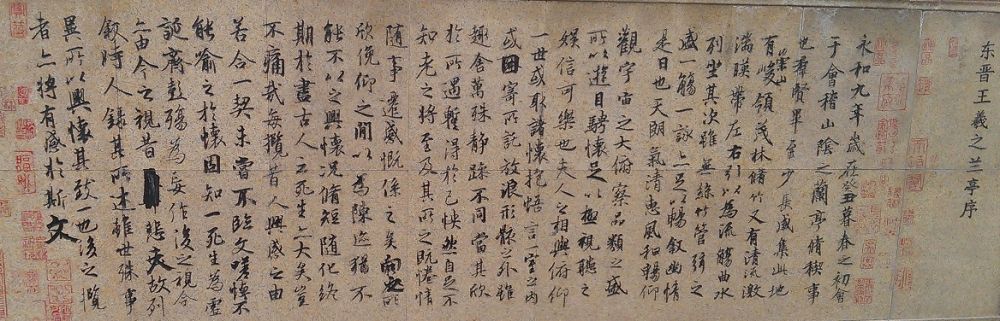 东晋王羲之兰亭序
永和九年歲在癸丑暮春之初會
于會稽山陰之蘭亭脩禊事
也羣賢畢至少長咸集此地
有崇山峻領茂林脩竹又有清流激
湍暎帶左右引以為流觴曲水
列坐其次雖無絲竹管弦之
盛一觴一詠亦足以暢敘幽情
是日也天朗氣清惠風和暢仰
觀宇宙之大俯察品類之盛
所以遊目騁懷足以極視聽之
娛信可樂也夫人之相與俯仰
一世或取諸懷抱悟言一室之內
或因寄所託放浪形骸之外雖
趣舍萬殊靜躁不同當其欣
於所遇暫得於己怏然自足不
知老之將至及其所之既惓情
隨事遷感慨係之矣向之所
欣俛仰之閒以為陳迹猶不
能不以之興懷況脩短隨化終
期於盡古人云死生亦大矣豈
不痛哉每攬昔人興感之由
若合一契未嘗不臨文嗟悼不
能喻之於懷固知一死生為虛
誕齊彭殤為妄作後之視今
亦由今之視昔悲夫故列
敘時人錄其所述雖世殊事
異所以興懷其致一也後之攬
者亦將有感於斯文